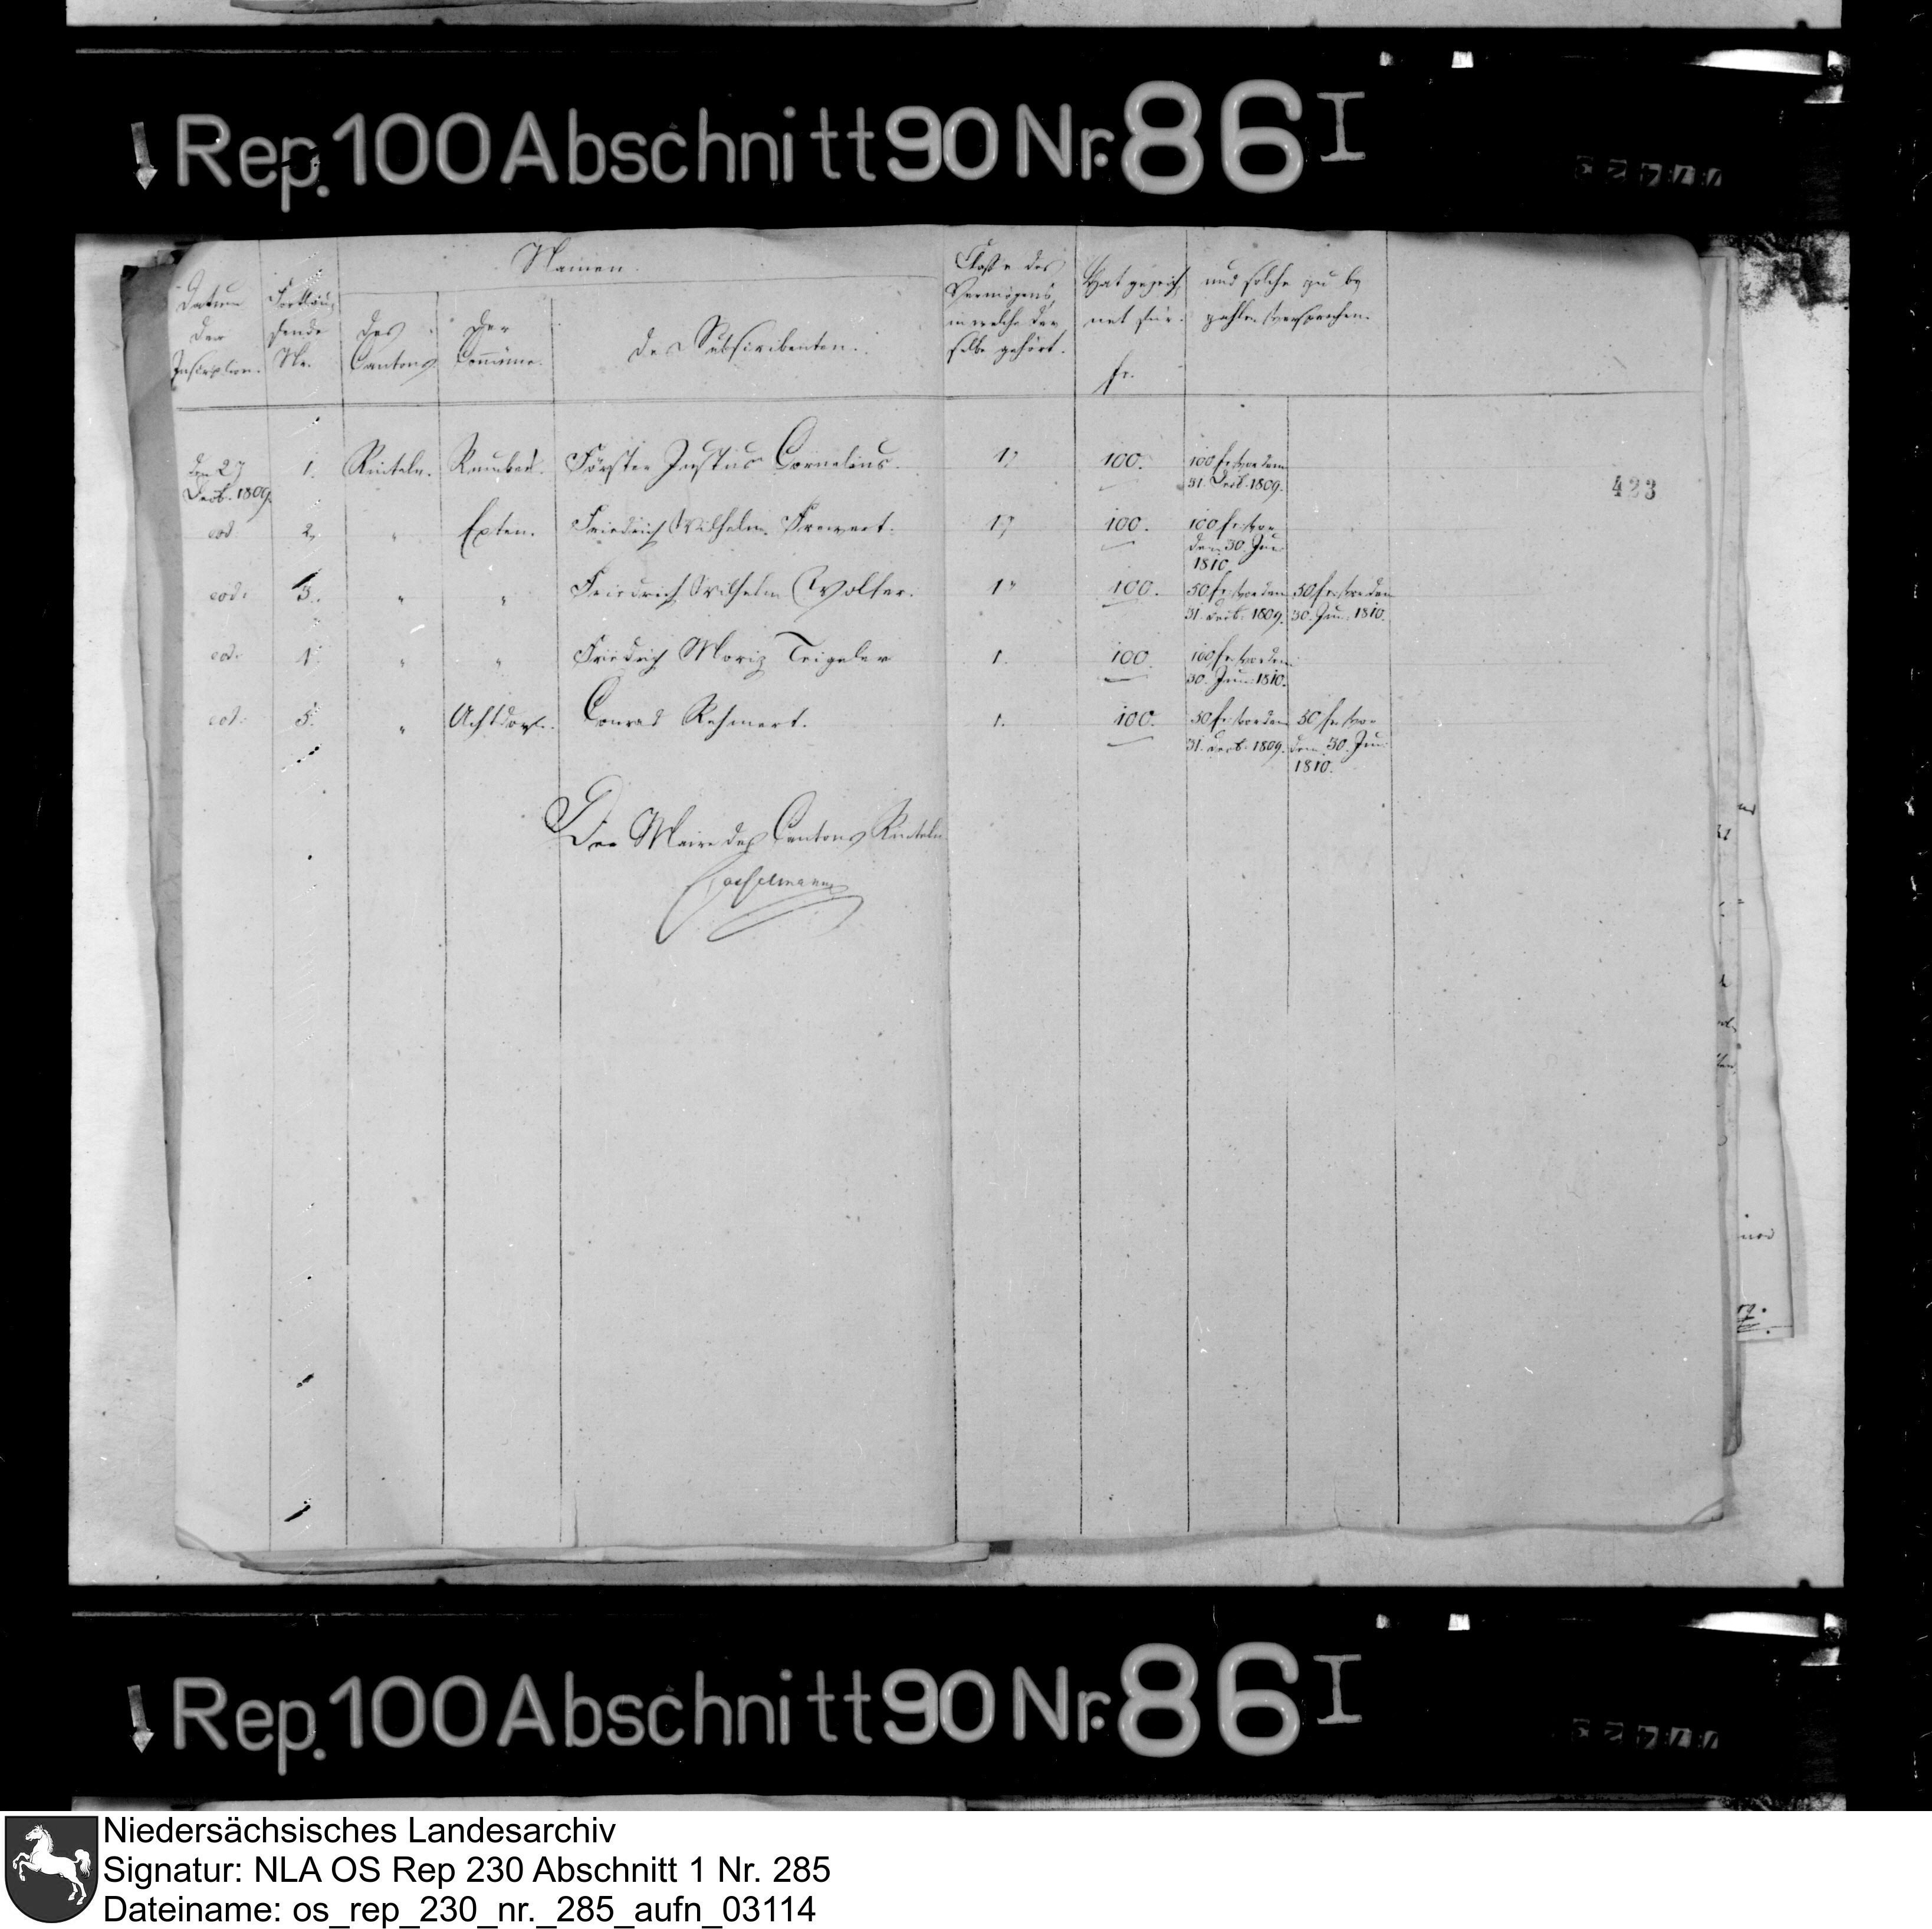 Rep. 100 Abschnitt 90 Nr. 86 I
Namen.
Datum der Inscription.
Fortlaufende Nr.
des Cantons
der Commüne.
der Subscribenten.
Classe des Vermögens, in welche derselbe gehört.
Hat gezeichnet für. fr.
und solche zu bezahlen versprochen.
den 27 Decb. 1809. 1. Rinteln. Förster Justus Cornelius. 100. 100 fr. vor dem 31. Decb. 1809.
423
eod. 2. " Exten. Friedrich Wilhelm Frevert. 100. 100 fr. vor dem 30. Jun. 1810.
eod. 3. " " Friedrich Wilhelm Wolter. 100. 50 fr. vor dem 31. Decb. 1809. 50 fr. vor dem 30. Jun. 1810.
eod. " " Friedrich Moriz Teigeler 1. 100. 100 fr. vor dem 30. Jun. 1810.
eod. 5. " Conrad 1. 100. 50 fr. vor dem 31. Decb. 1809. 50 fr. vor dem 30. Jun. 1810.
Der Maire des Cantons Rinteln
Rep. 100 Abschnitt 90 Nr. 86 I
Niedersächsisches Landesarchiv
Signatur: NLA OS Rep 230 Abschnitt 1 Nr. 285
Dateiname: os_rep_230_nr._285_aufn_03114